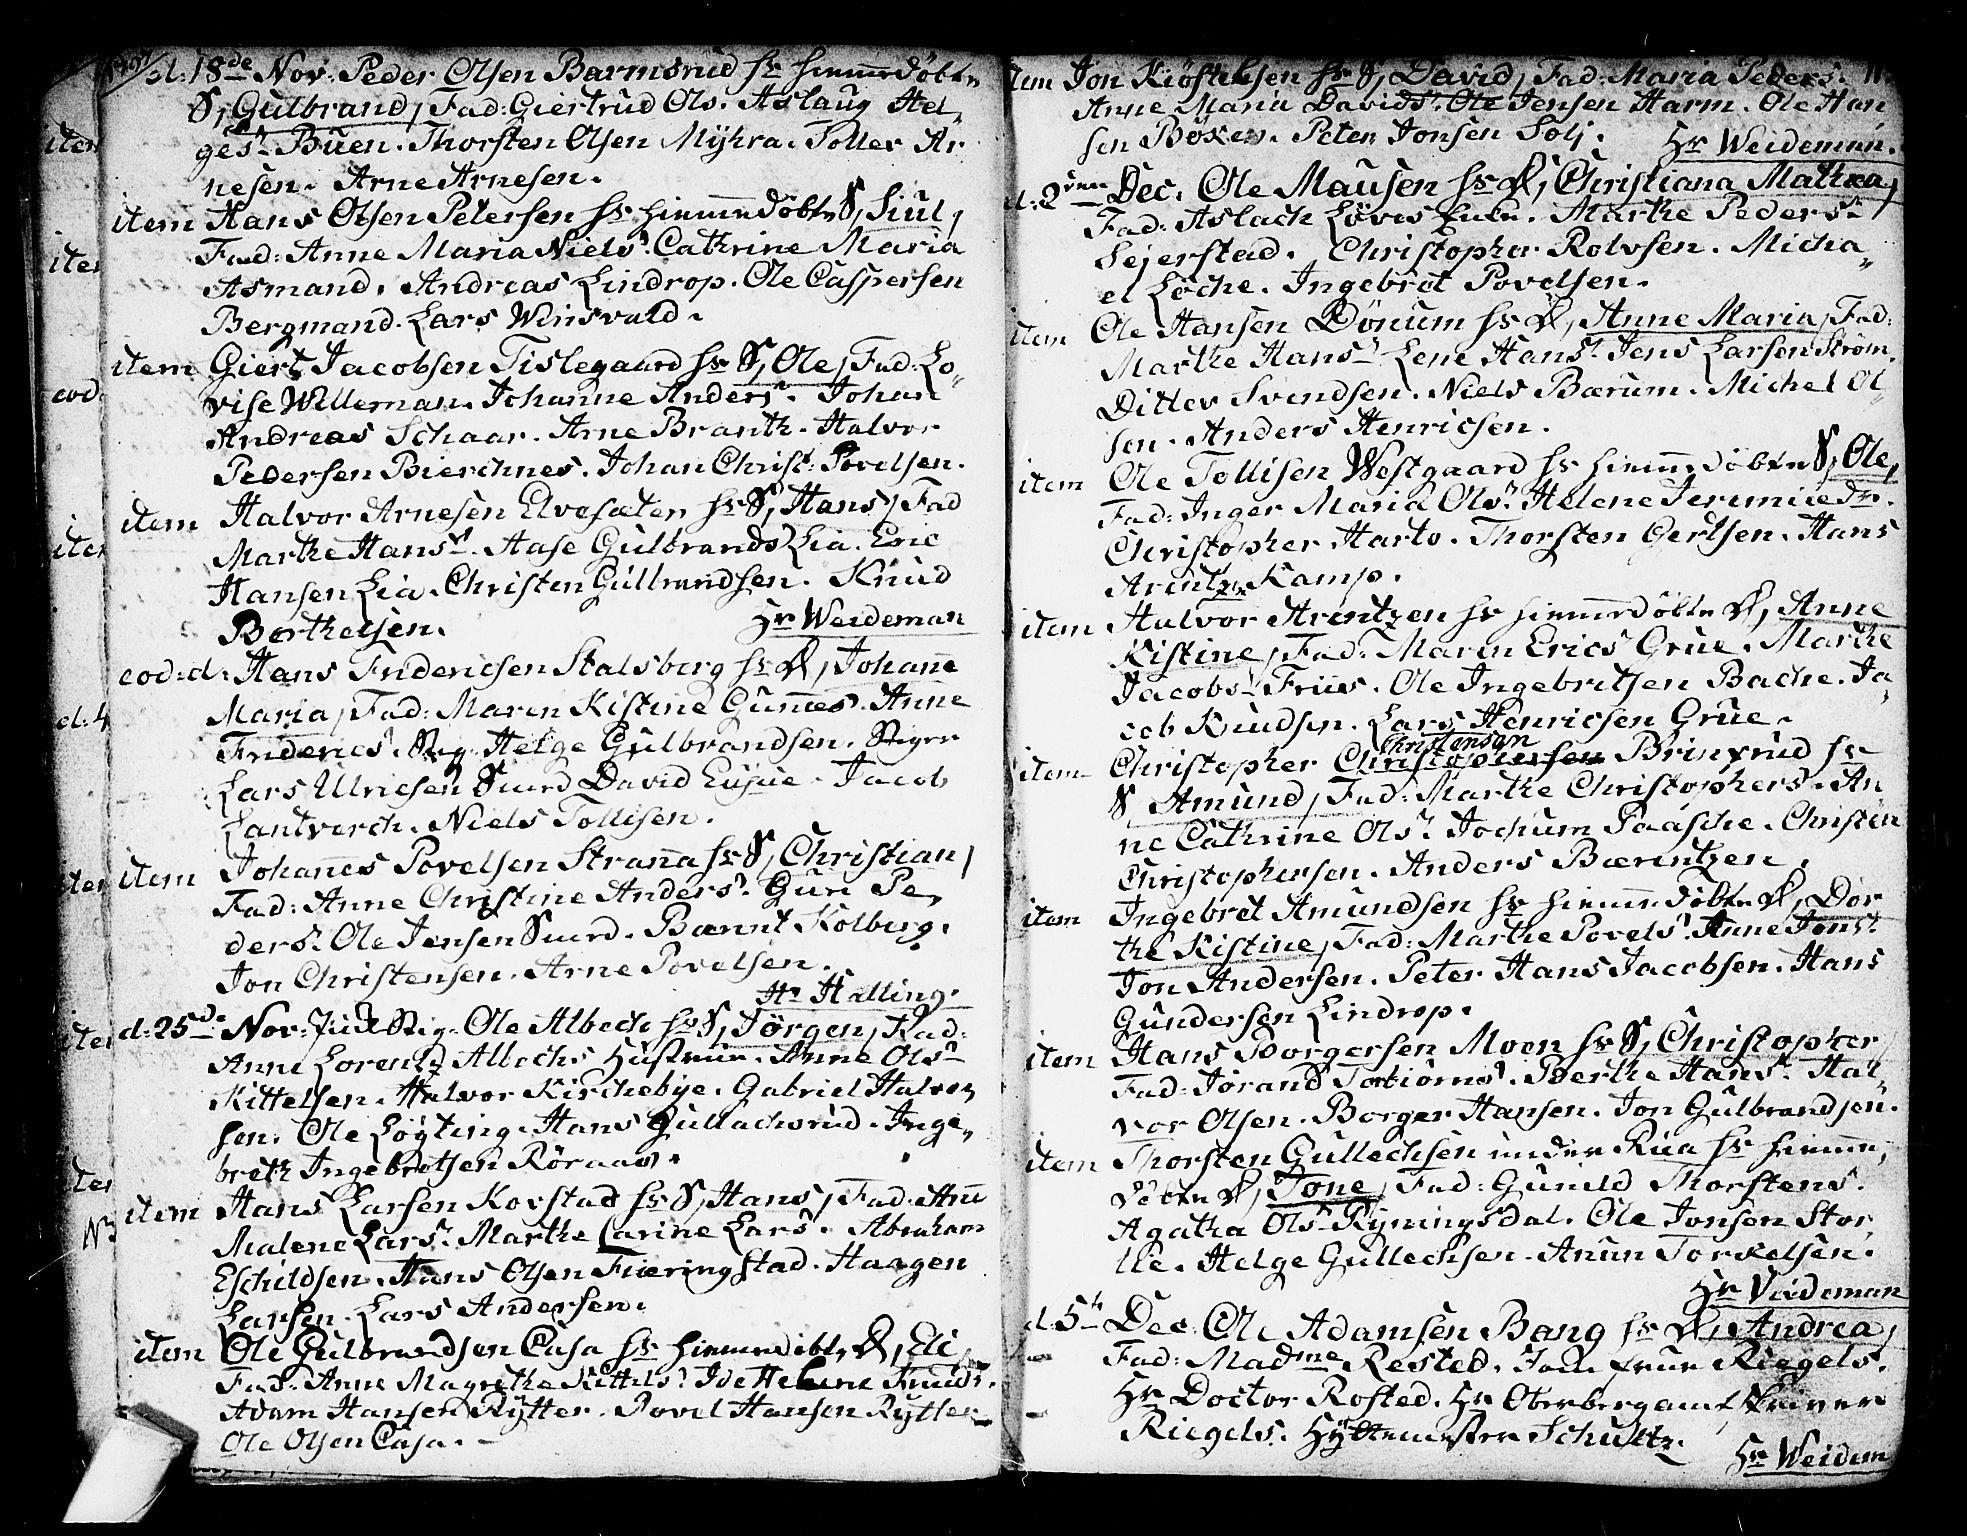 d: 18de Nov: Peder Olsen Barmsrud Hr hiemmedøbte
S, Gulbrand, Fad: Giertrud Ols. Aslaug Hel„
gesr Buen. Thorsten Olsen Myhra. Toller Ar
nesen. Arne Arnesen.
item Hans Olsen Petersen Hr hiemmedøbte S, Siul,
Fad: Anne Maria Nielsr. Cathrine Maria
Asmand. Andreas Lindrop. Ole Caspersen
Bergmand. Lars Winsvald.
item Giert Jacobsen Tislegaard Hr S, Ole, Fad: Lo„
vise Willeman. Johanne Andersr. Johan
Andreas Schaar. Arne Branth. Halvor
Pedersen Bierchnes. Johan Christ: Povelsen.
item Halvor Arnesen Elvesæter Hr S, Hans, Fad
Marthe Hansr. Aase Gulbrands Lia. Eric
Hansen Lia. Christen Gulbrandsen. Knud
Borthelsen.
Hr Weideman
eod: d: Hans Friderichsen Stalsberg Hr D, Johanne
Maria, Fad: Maren Kistine Gunnes. Anne
Friderics. Stig. Helge Gulbrandsen. Stiger
Lars Ulricsen David Jacob
Lantverch. Niels Tollisen.
item Johannes Povelsen Stranna Hr S, Christian,
Fad: Anne Christine Andersr. Guri Pe„
dersr. Ole Jensen Smed. Bærent Kolberg.
Jon Christensen. Arne Povelsen.
Hr Halling.
d: 25de Nov: Stig. Ole Albech Hr S, Jörgen, Fad:
Anne Lorentz Albechs Hustrue. Anne Olsr
Kittelsen. Halvor Kirchebye. Gabriel Halvor„
sen. Ole Løyting. Hans Gullachsrud. Inge„
breth Ingebretsen Röraas.
item Hans Larsen Korstad Hr S, Hans, Fad: Anne
Malene Larsr. Marthe Carine Larsr. Abraham
Eschildsen. Hans Olsen Fiæringstad. Haagen
Larsen. Lars Andersen.
item Ole Gulbrandsen Casa Hr hiemmedøbte D, Eli,
Fad: Anne Magrethe Kittelsr. Ide Helene Knudsr.
Adam Hansen Rytter. Povel Hansen Rytter
Ole Olsen Casa.
item Jon Kiöstelsen Hr S, David, Fad: Maria Peders.
Anne Maria Davidsr. Ole Jensen Harm. Ole Han
sen Böxen. Peter Jonsen Solj.
Hr Weideman.
d: 2den Dec. Ole Mausen Hr D, Christiana Mathea,
Fad: Aslach Marthe Pedersr
Sejerstad. Christopher Rolvsen. Micha„
el Löche. Ingebret Povelsen.
item Ole Hansen Dönum Hr D, Anne Maria, Fad:
Marthe Hansr. Lene Hansr. Jens Larsen Ström.
Ditlev Svendsen. Niels Bærum. Michel Ol„
sen. Anders Henricsen.
item Ole Tollisen Westgaard Hr hiemmedøbte S, Ole,
Fad: Inger Maria Olsr. Helene Jeremiæ dr.
Christopher Harto. Thorsten Gertsen. Hans
Arentz Kamp.
item Halvor Arentzen Hr hiemmedøbte D, Anne
Kistine, Fad: Maren Erics Grue. Marthe
Jacobsr Friis. Ole Ingebritsen Bache. Ja„
cob Knudsen. Lars Henricsen Grue.
Christensen
item Christopher Christophersen Brinxrud Hr
S, Amund, Fad: Marthe Christophers. An
ne Cathrine Olsr. Jochum Paasche. Christen
Christophersen. Anders Bærentzen.
item Ingebret Amundsen Hr hiemmedøbte D, Dor
the Kistine, Fad: Marthe Povelsr. Anne Jonsr.
Jon Andersen. Peter Hans Jacobsen. Hans
Gundersen Lindrop.
item Hans Borgersen Moen Hr S, Christopher
Fad: Jörand Torbiörnsr. Berthe Hansr. Hal„
vor Olsen. Borger Hansen. Jon Gulbrandsen.
item Thorsten Gullechsen under Rua Hr hiemme„
döbte D, Tone, Fad: Gunild Thorstens.
Agatha Olsr Ryningsdal. Ole Jonsen Stor
lie. Helge Gullechsen. Anun Torkelsen.
Hr Veideman
d: 5te Dec: Ole Adamsen Bang Hr D, Andrea,
Fad: Madme Rosted. Frue Riegels.
Hr Doctor Rosted. Hr Oberbergamtskriver
Riegels. Hyttemester Schultz.
Hr Weidem